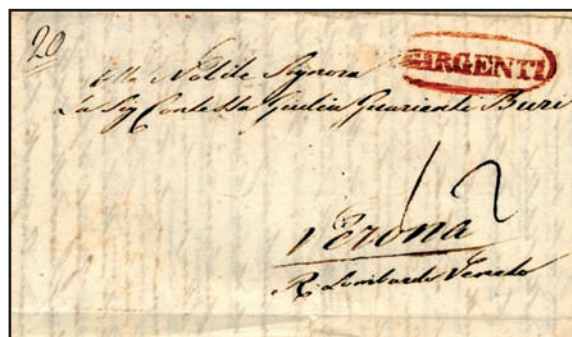 20
GIRGENTI
Alla Nobile Signora
La Sig Contessa Giulia Guarienti Buri
12
Verona
R. Lombardo Veneto